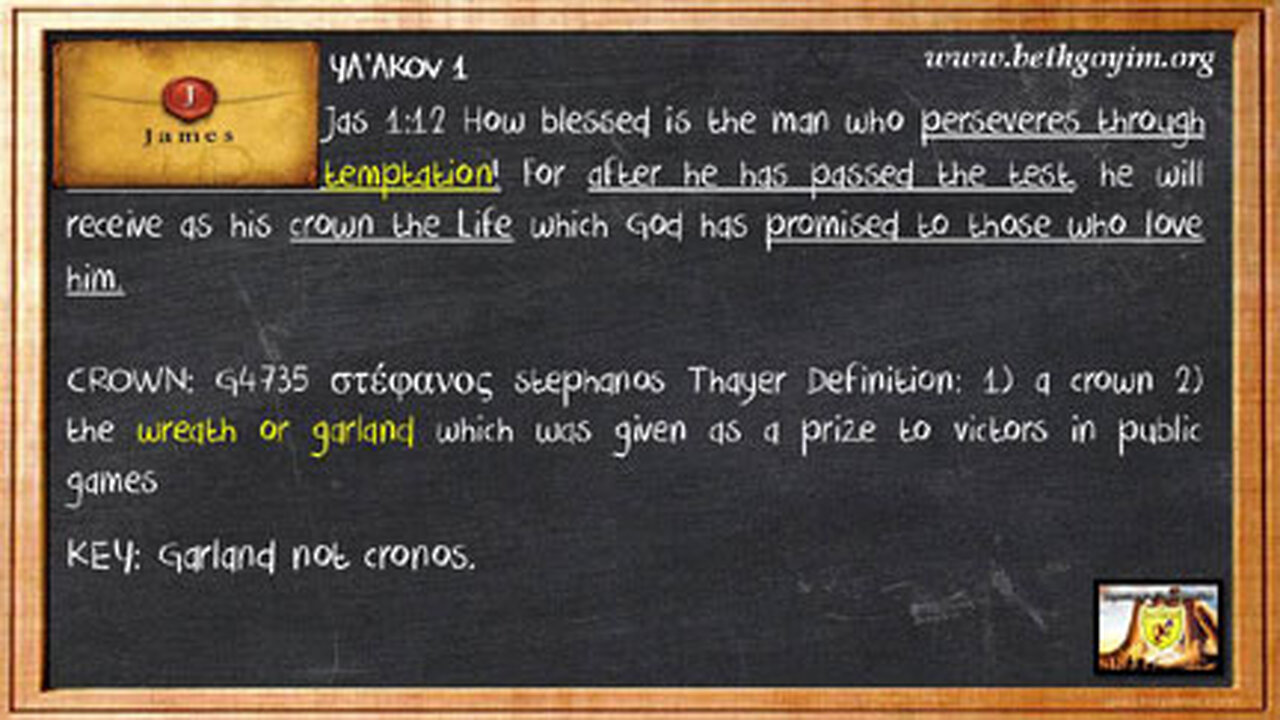 www.bethgoyim.org
YA'AKOV 1
J
James
Jas 1:12 How blessed is the man who perseveres through
temptation! For after he has passed the test, he will
receive as his crown the Life which God has promised to those who love
him.
CROWN: G4735 στέφανος stephanos Thayer Definition: 1) a crown 2)
the wreath or garland which was given as a prize to victors in public
games
KEY: Garland not cronos.